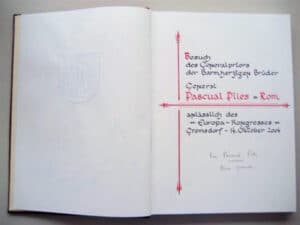 Besuch
des Generalpriors
der Barmherzigen Brüder
General
Pascual Piles = Rom
anlässlich des
= Europa = Kongresses =
Gremsdorf - 14. Oktober 2004